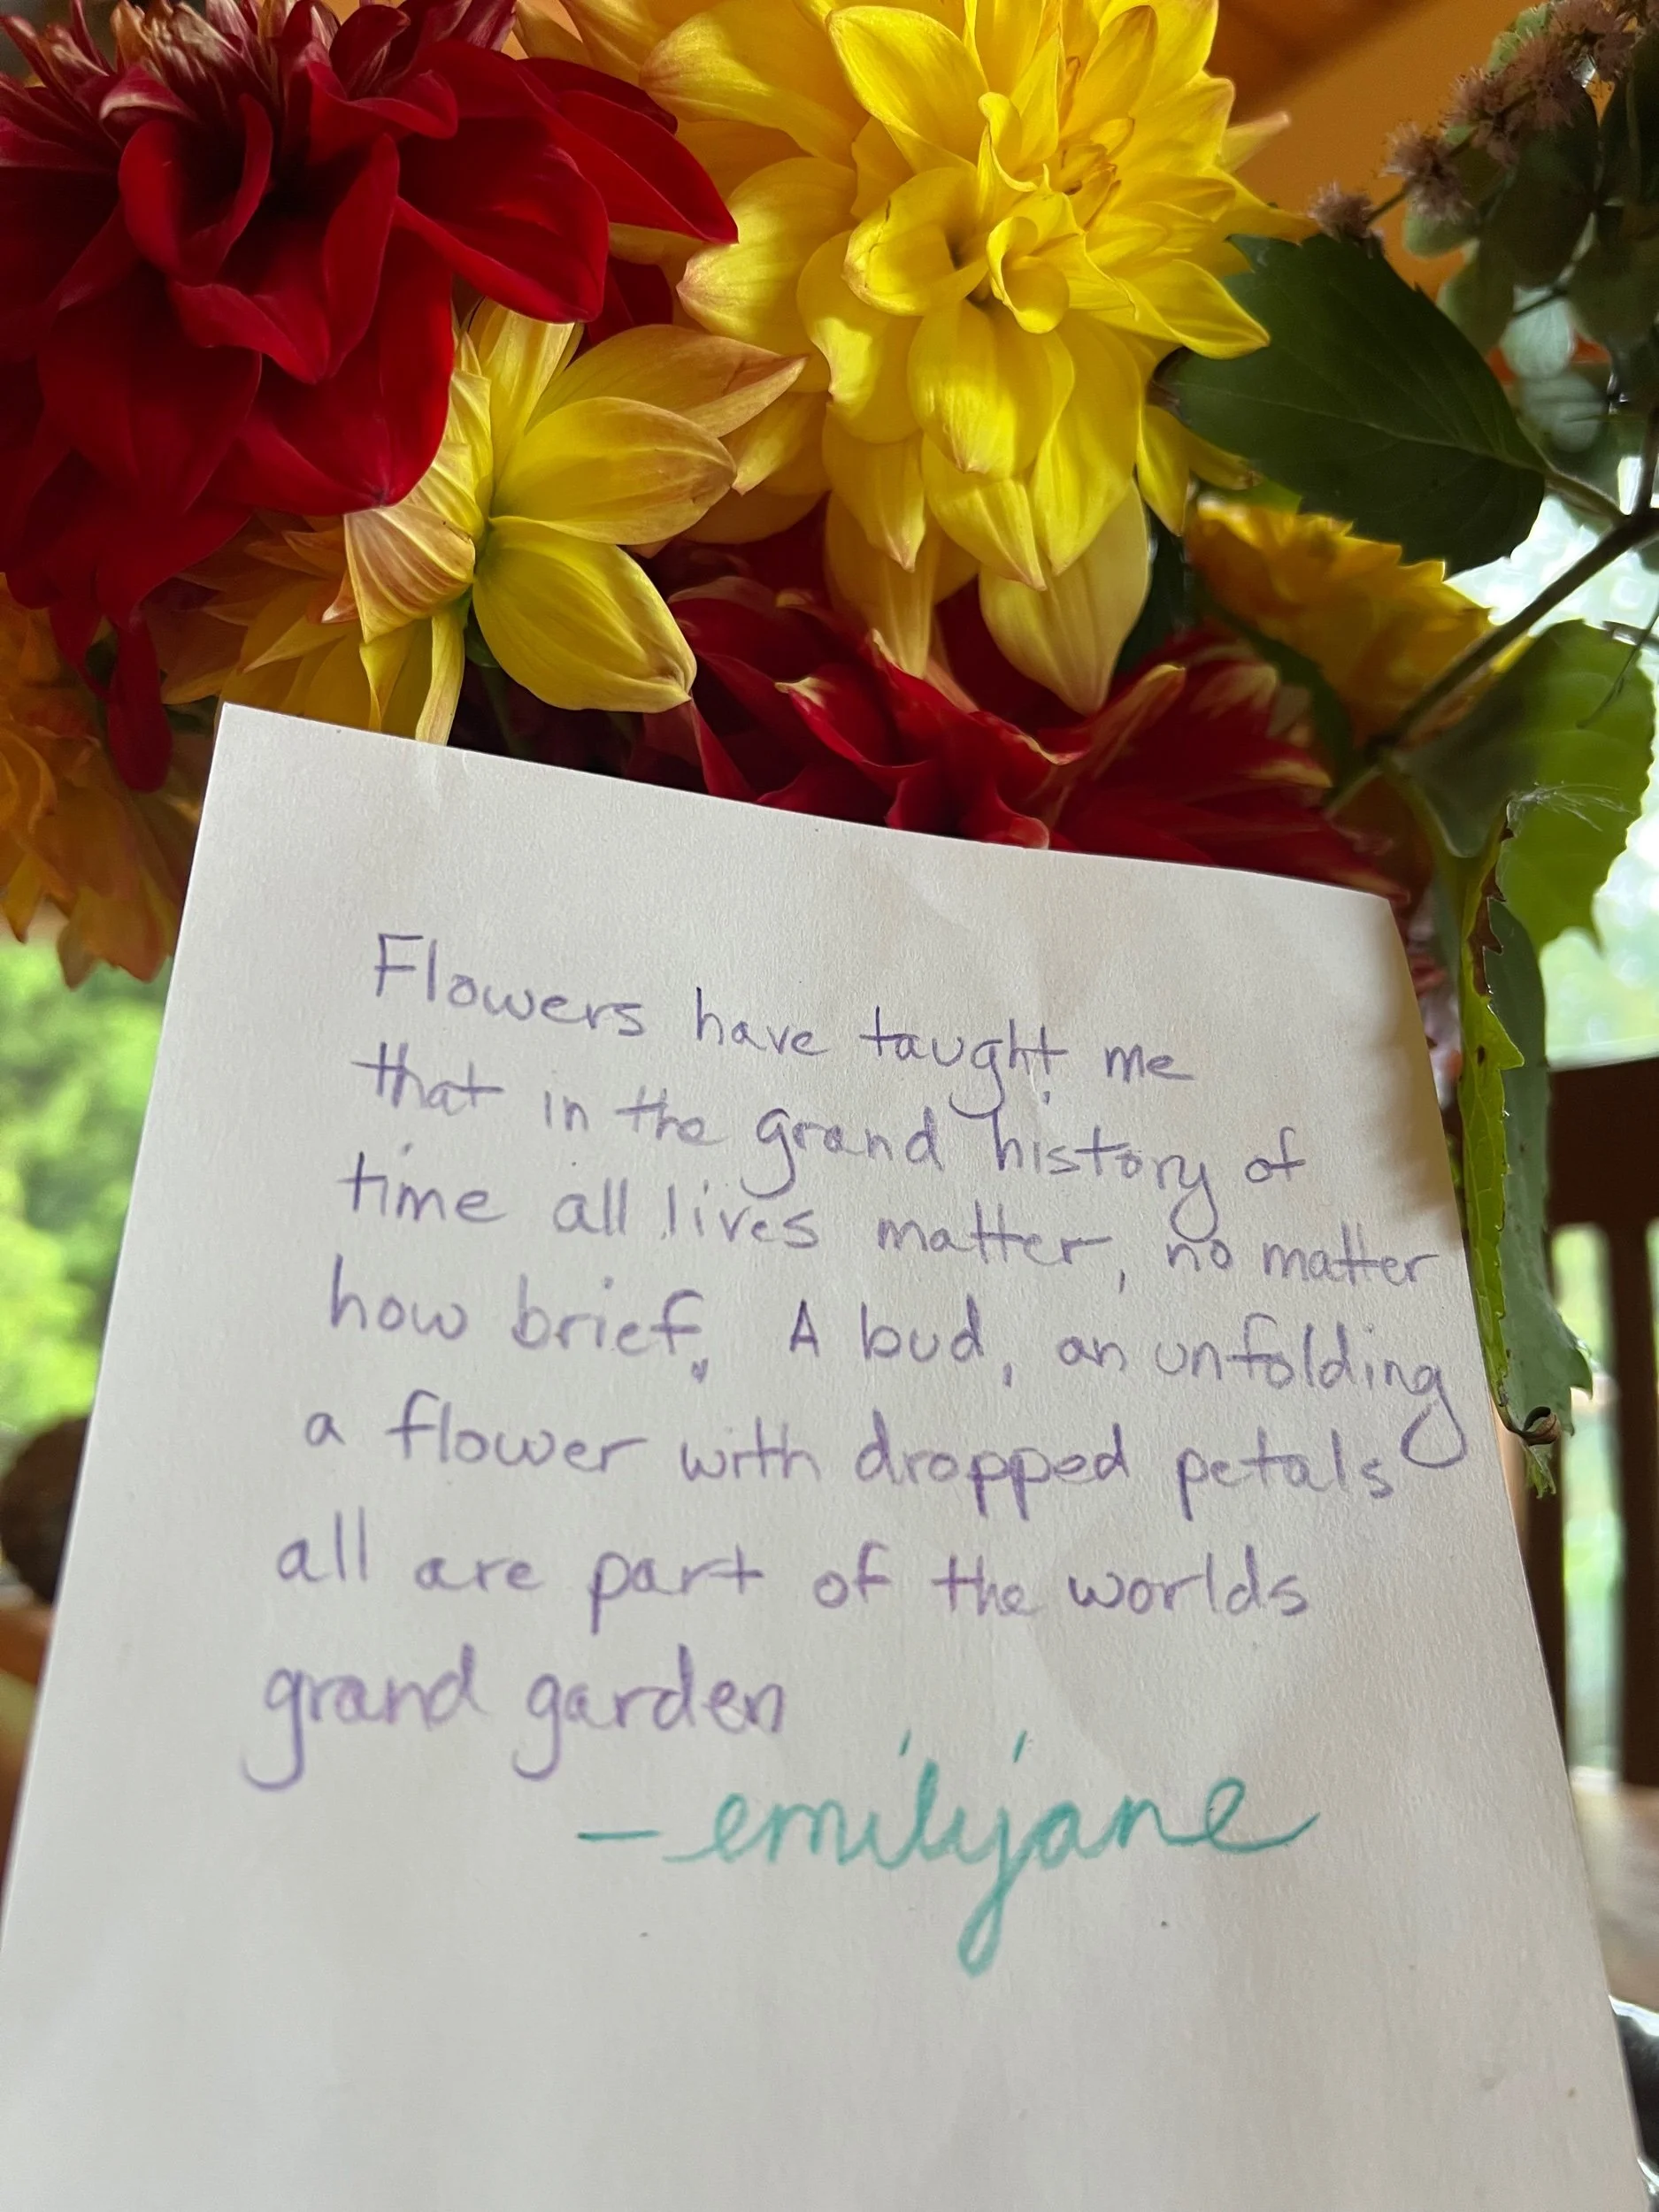 Flowers have taught me
that in the grand history of
time all lives matter, no matter
how brief. A bud, an unfolding
a flower with dropped petals
all are part of the worlds
grand garden
— emilyjane